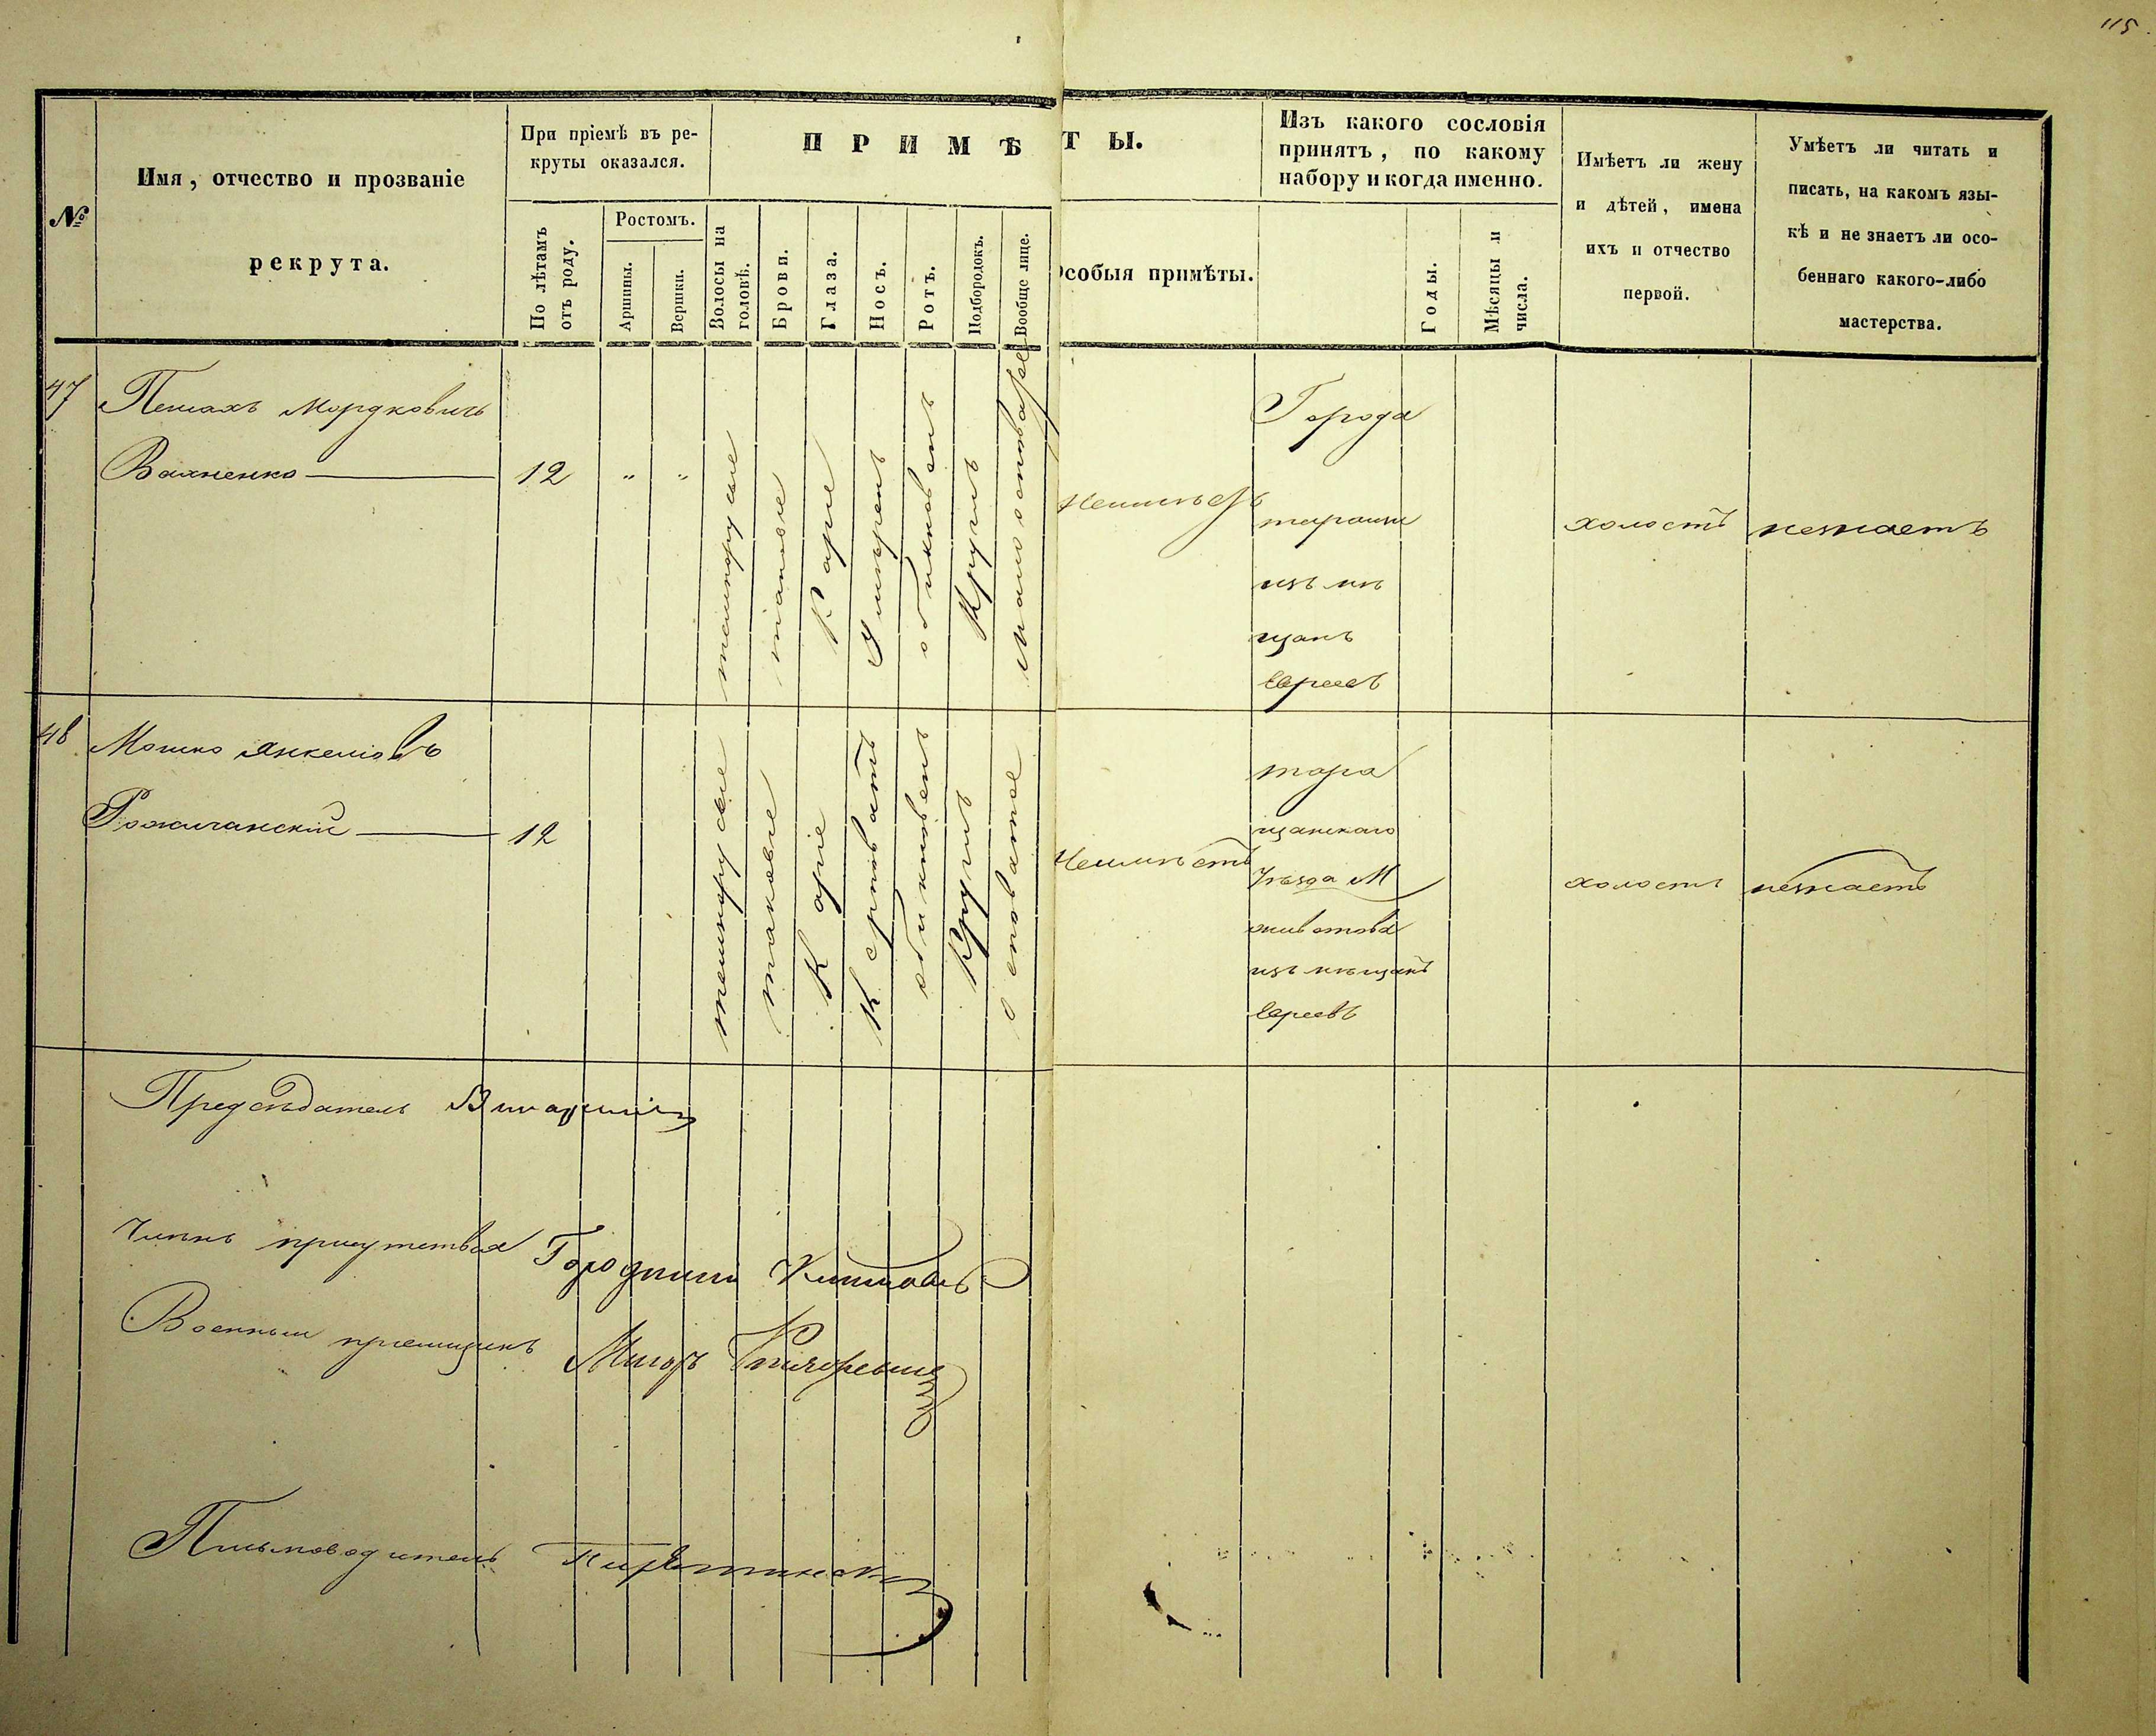 115
№
Имя, отчество и прозваніе
рекрута.
При пріемѣ въ ре-
круты оказался.
По лѣтамъ
отъ роду.
Ростомъ.
Аршины.
Вершки.
ПРИМѢТЫ.
Волосы на
головѣ.
Брови.
Глаза.
Носъ.
Ротъ.
Подбородокъ.
Вообще лице.
Особыя примѣты.
Изъ какого сословія
принятъ, по какому
набору и когда именно.
Годы.
Мѣсяцы и
числа.
Имѣетъ ли жену
и дѣтей, имена
ихъ и отчество
первой.
Умѣетъ ли читать и
писать, на какомъ язы-
кѣ и не знаетъ ли осо-
беннаго какого-либо
мастерства.
47
Мордковичъ
Вахненко
12
" "
таковые
Каріе
обикновенъ
Круглъ
Города
изъ мѣ
щанъ
Евреевъ
холостъ
незнаетъ
48
Мошко Янкеліовъ
12
таковые
Каріе
обикновенъ
Круглъ
Неимѣетъ
тара
щанскаго
Уѣзда М
животова
изъ мѣщанъ
Евреевъ
холостъ
незнаетъ
Предсѣдатель
Членъ присутствія Городничій
Военный пріемщикъ Маіоръ
Письмоводитель